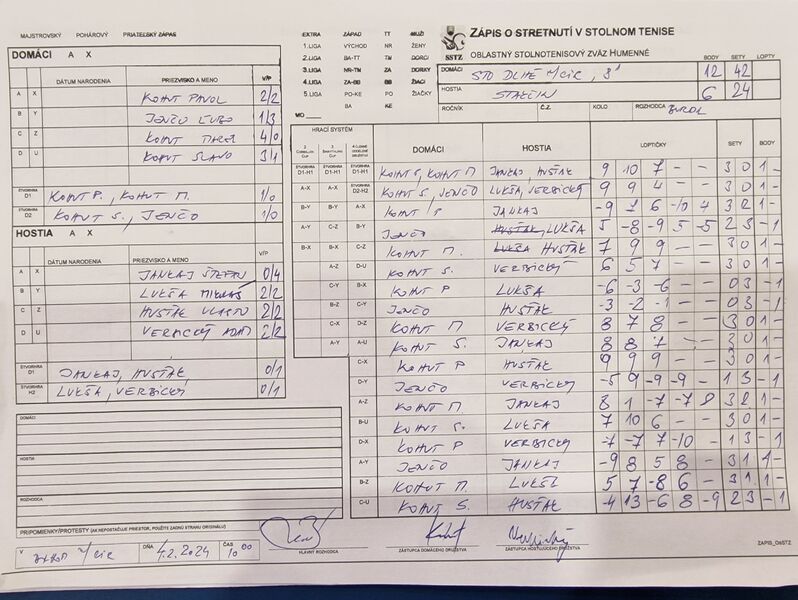 MAJSTROVSKÝ POHÁROVÝ PRIATEĽSKÝ ZÁPAS
EXTRA ZÁPAD TT MUŽI
1.LIGA VÝCHOD NR ŽENY
2.LIGA BA-TT TM DORCI
3.LIGA NR-TM ZA DORKY
4.LIGA ZA-BB BB ŽIACI
5.LIGA PO-KE PO ŽIAČKY
BA KE
MO
SSTZ
ZÁPIS O STRETNUTÍ V STOLNOM TENISE
OBLASTNÝ STOLNOTENISOVÝ ZVÄZ HUMENNÉ
BODY SETY LOPTY
DOMÁCI STO DLHÉ N/CIR, "B" 12 42
HOSTIA STAKČIN 6 24
ROČNÍK Č.Z. KOLO ROZHODCA
DOMÁCI A X
DÁTUM NARODENIA PRIEZVISKO A MENO V/P
A X KOHUT PAVOL 2/2
B Y JENČO ĽUBO 1/3
C Z KOHUT 4/0
D U KOHUT SLAVO 3/1
ŠTVORHRA D1 KOHUT P., KOHUT M. 1/0
ŠTVORHRA D2 KOHUT S., JENČO 1/0
HOSTIA A X
DÁTUM NARODENIA PRIEZVISKO A MENO V/P
A X JANKAJ ŠTEFAN 0/4
B Y LUKŠA MIKULÁŠ 2/2
C Z HUSŤÁK VLASTO 2/2
D U VERBICKÝ ADAM 2/2
ŠTVORHRA D1 JANKAJ, HUSŤÁK 0/1
ŠTVORHRA H2 LUKŠA, VERBICKÝ 0/1
DOMÁCI
HOSTIA
ROZHODCA
HRACÍ SYSTÉM DOMÁCI HOSTIA LOPTIČKY SETY BODY
D1-H1 D1-H1 D1-H1 KOHUT S, KOHUT M JANKAJ, HUSŤÁK 9 10 7 - - 3 0 1 -
A-X A-X D2-H2 KOHUT S, JENČO LUKŠA, VERBICKÝ 9 9 4 - - 3 0 1 -
B-Y B-Y A-X KOHUT P JANKAJ -9 7 6 -10 7 3 2 1 -
A-Y C-Z B-Y JENČO HUSŤÁK LUKŠA 5 -8 -9 5 -5 2 3 - 1
B-X B-X C-Z KOHUT M. LUKŠA HUSŤÁK 7 9 9 - - 3 0 1 -
A-Z D-U KOHUT S. VERBICKÝ 6 5 7 - - 3 0 1 -
C-Y B-X KOHUT P LUKŠA -6 -3 -6 - - 0 3 - 1
B-Z C-Y JENČO HUSŤÁK -3 -2 -1 - - 0 3 - 1
C-X D-Z KOHUT M VERBICKÝ 8 7 8 - - 3 0 1 -
A-Y A-U KOHUT S. JANKAJ 8 8 7 - - 3 0 1 -
C-X KOHUT P HUSŤÁK 9 9 9 - - 3 0 1 -
D-Y JENČO VERBICKÝ -5 9 -9 -9 - 1 3 - 1
A-Z KOHUT M. JANKAJ 8 1 -7 -7 8 3 2 1 -
B-U KOHUT S. LUKŠA 7 10 6 - - 3 0 1 -
D-X KOHUT P VERBICKÝ -7 -7 7 -10 - 1 3 - 1
A-Y JENČO JANKAJ -9 8 5 8 - 3 1 1 -
B-Z KOHUT M. LUKŠA 5 7 -8 6 - 3 1 1 -
C-U KOHUT S. HUSŤÁK -4 13 -6 8 -9 2 3 - 1
PRIPOMIENKY/PROTESTY (AK NEPOSTAČUJE PRIESTOR, POUŽITE ZADNÚ STRANU ORIGINÁLU)
V DLHOM N/CIR DŇA 4.2.2024 ČAS 10 00
HLAVNÝ ROZHODCA ZÁSTUPCA DOMÁCEHO DRUŽSTVA ZÁSTUPCA HOSŤUJÚCEHO DRUŽSTVA
ZAPIS_OsSTZ